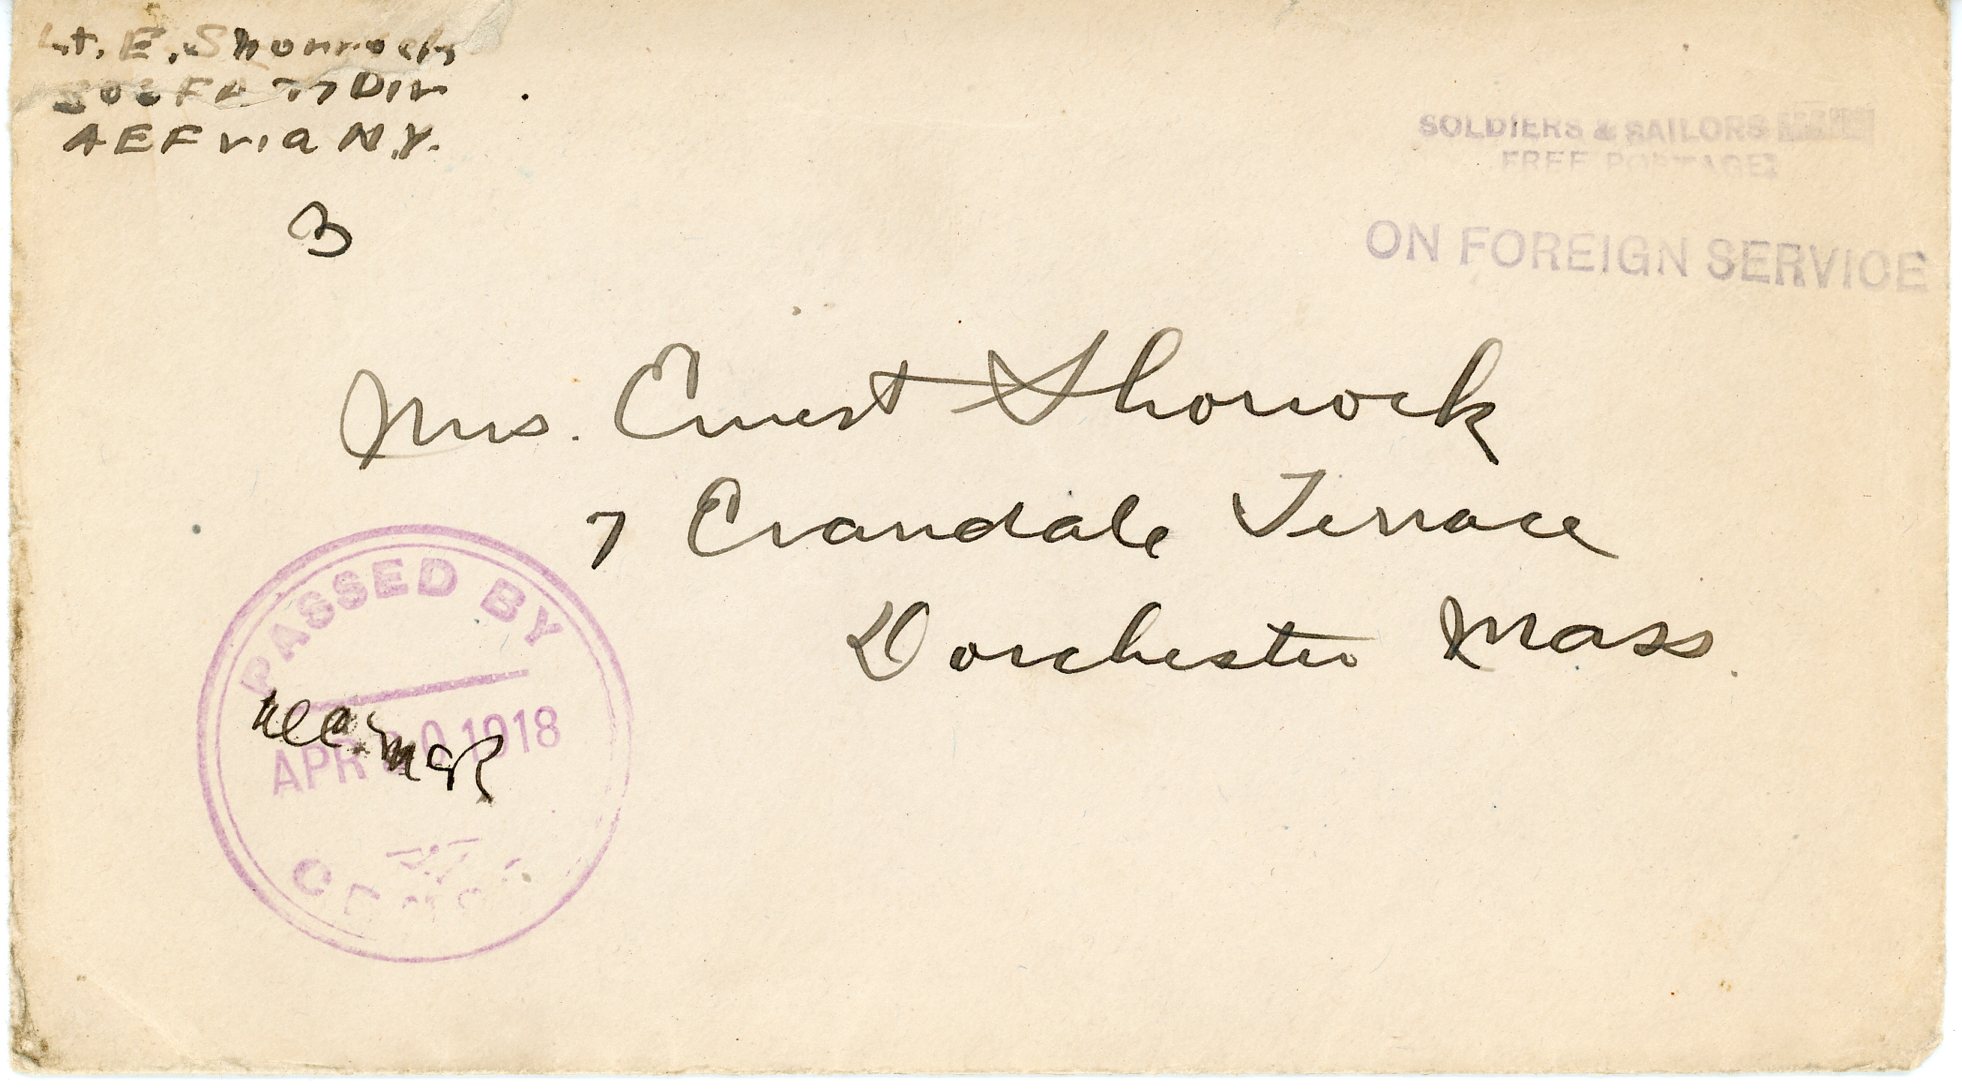 Lt. E. Shonrock
302 FA 77 Div
AEF via N.Y.
SOLDIERS & SAILORS MAIL
FREE POSTAGE
ON FOREIGN SERVICE
3
Mrs. Ernest Shonrock
7 Evandale Terrace
Dorchester Mass.
PASSED BY
APR 1918
CENSOR